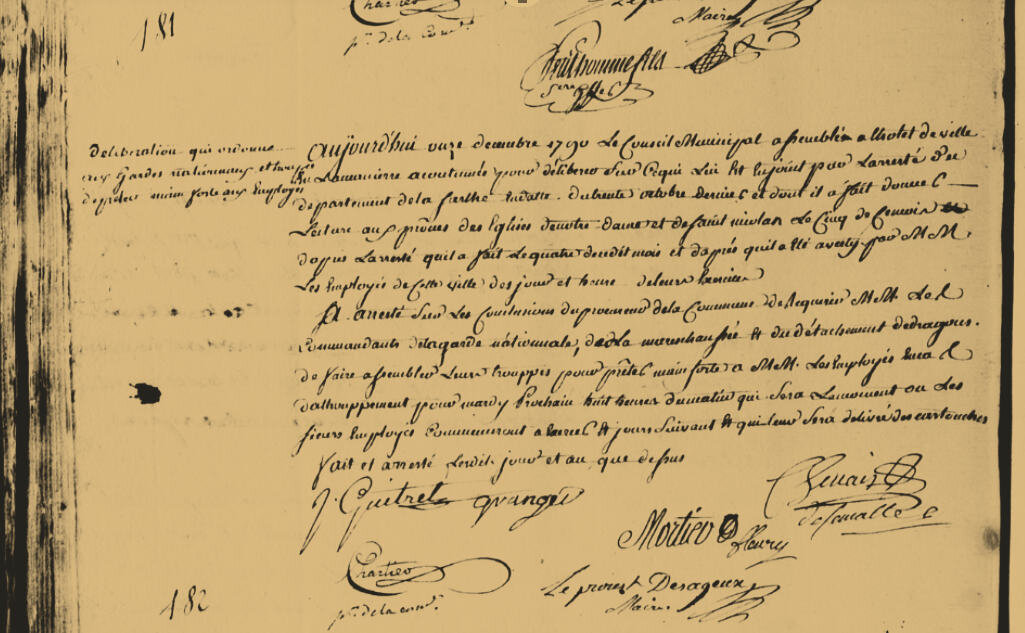 181
Chartier
pr. de la com.
Maire
Prudhomme fils
Deliberation qui ordonne
aux Gardes nationnaux et troupes
de preter main forte aux Employés
aujourd'hui onze decembre 1790 Le Conseil Municipal assemblée a lhotel de ville
en La maniere acoutumée pour déliberer sur Cequi Lui Est Enjoint par Larresté de
departement de la Sarthe Endatte du trente octobre dernier et dont il a fait donner
Lecture aux prônes des Eglises de notre dame et de saint nicolas Le Cinq de Cemois
dapres Larresté quil a fait Le quatre dud dit mois et daprès quil a Eté averty par MM.
Les Employés de Cette ville des jour et heure de leur
A arresté sur Les Conclusions du procureur de la Commune de Requerir MM Les
Commandants de la garde nationnale, de La mareschaussée et du détachement de dragons
de faire assembler Leurs trouppes pour prêter main forte a MM. Les Employés En cas
dattrouppement pour mardy Prochain huit heures du matin qui sera Lemoment ou Les
sieurs Employés Commenceront a et jours suivant et qui leur sera delivré des cartouches
fait et arresté Lesdits jour et an que dessus
J. Guitrel granger
Chenais
Mortier fleury
de
Chartier
pr. de la com.
Le provost Desageux
Maire
182